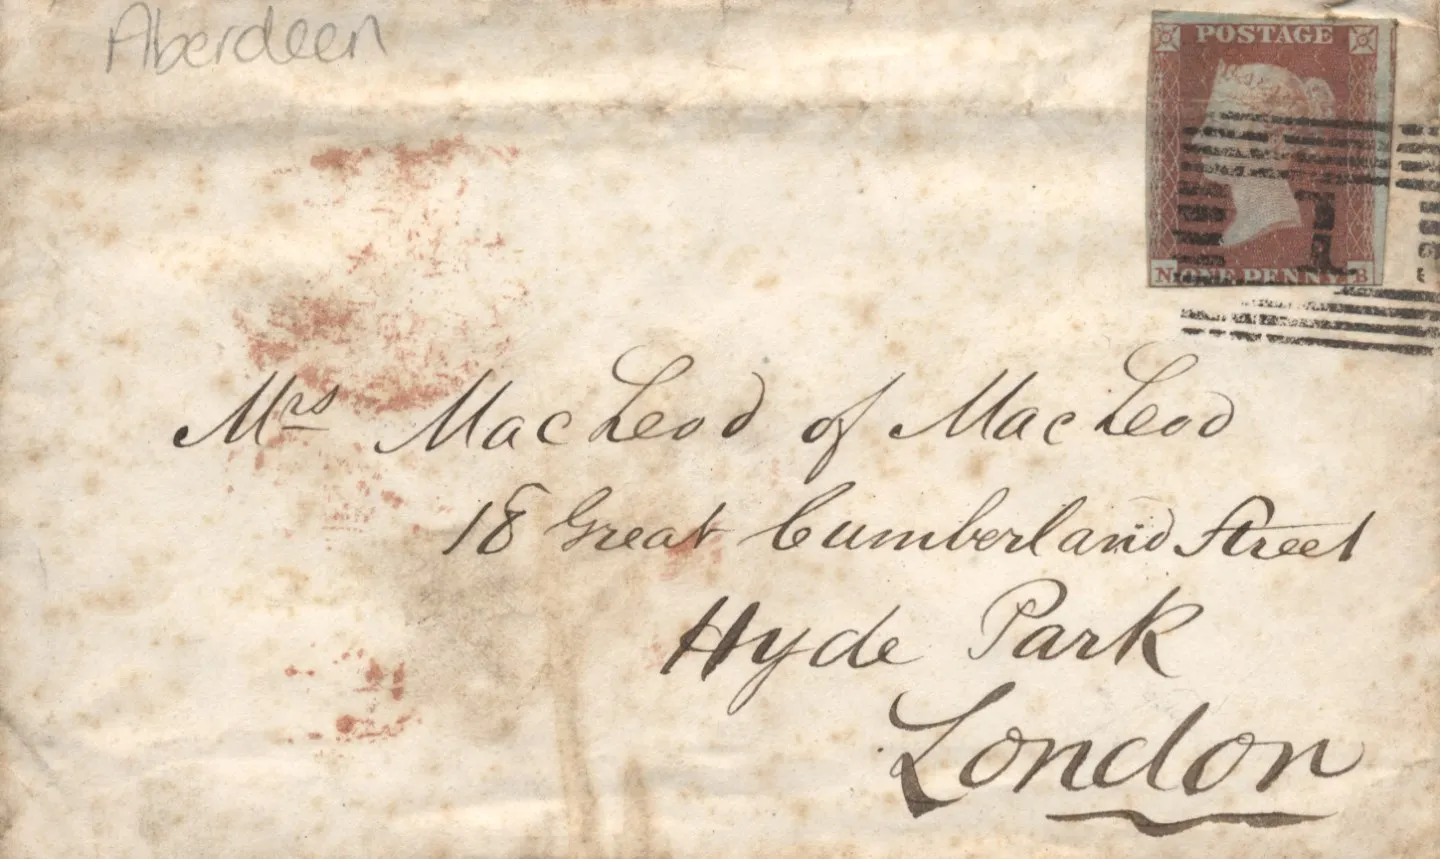 Aberdeen
POSTAGE
1
N ONE PENNY B
Mrs MacLeod of MacLeod
18 Great Cumberland Street
Hyde Park
London